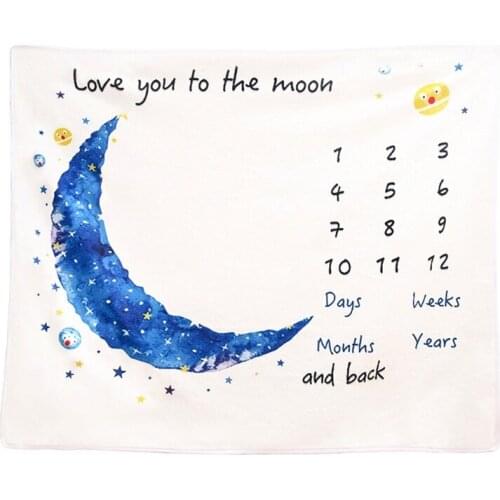 Love you to the moon
1 2 3
4 5 6
7 8 9
10 11 12
Days Weeks
Months Years
and back